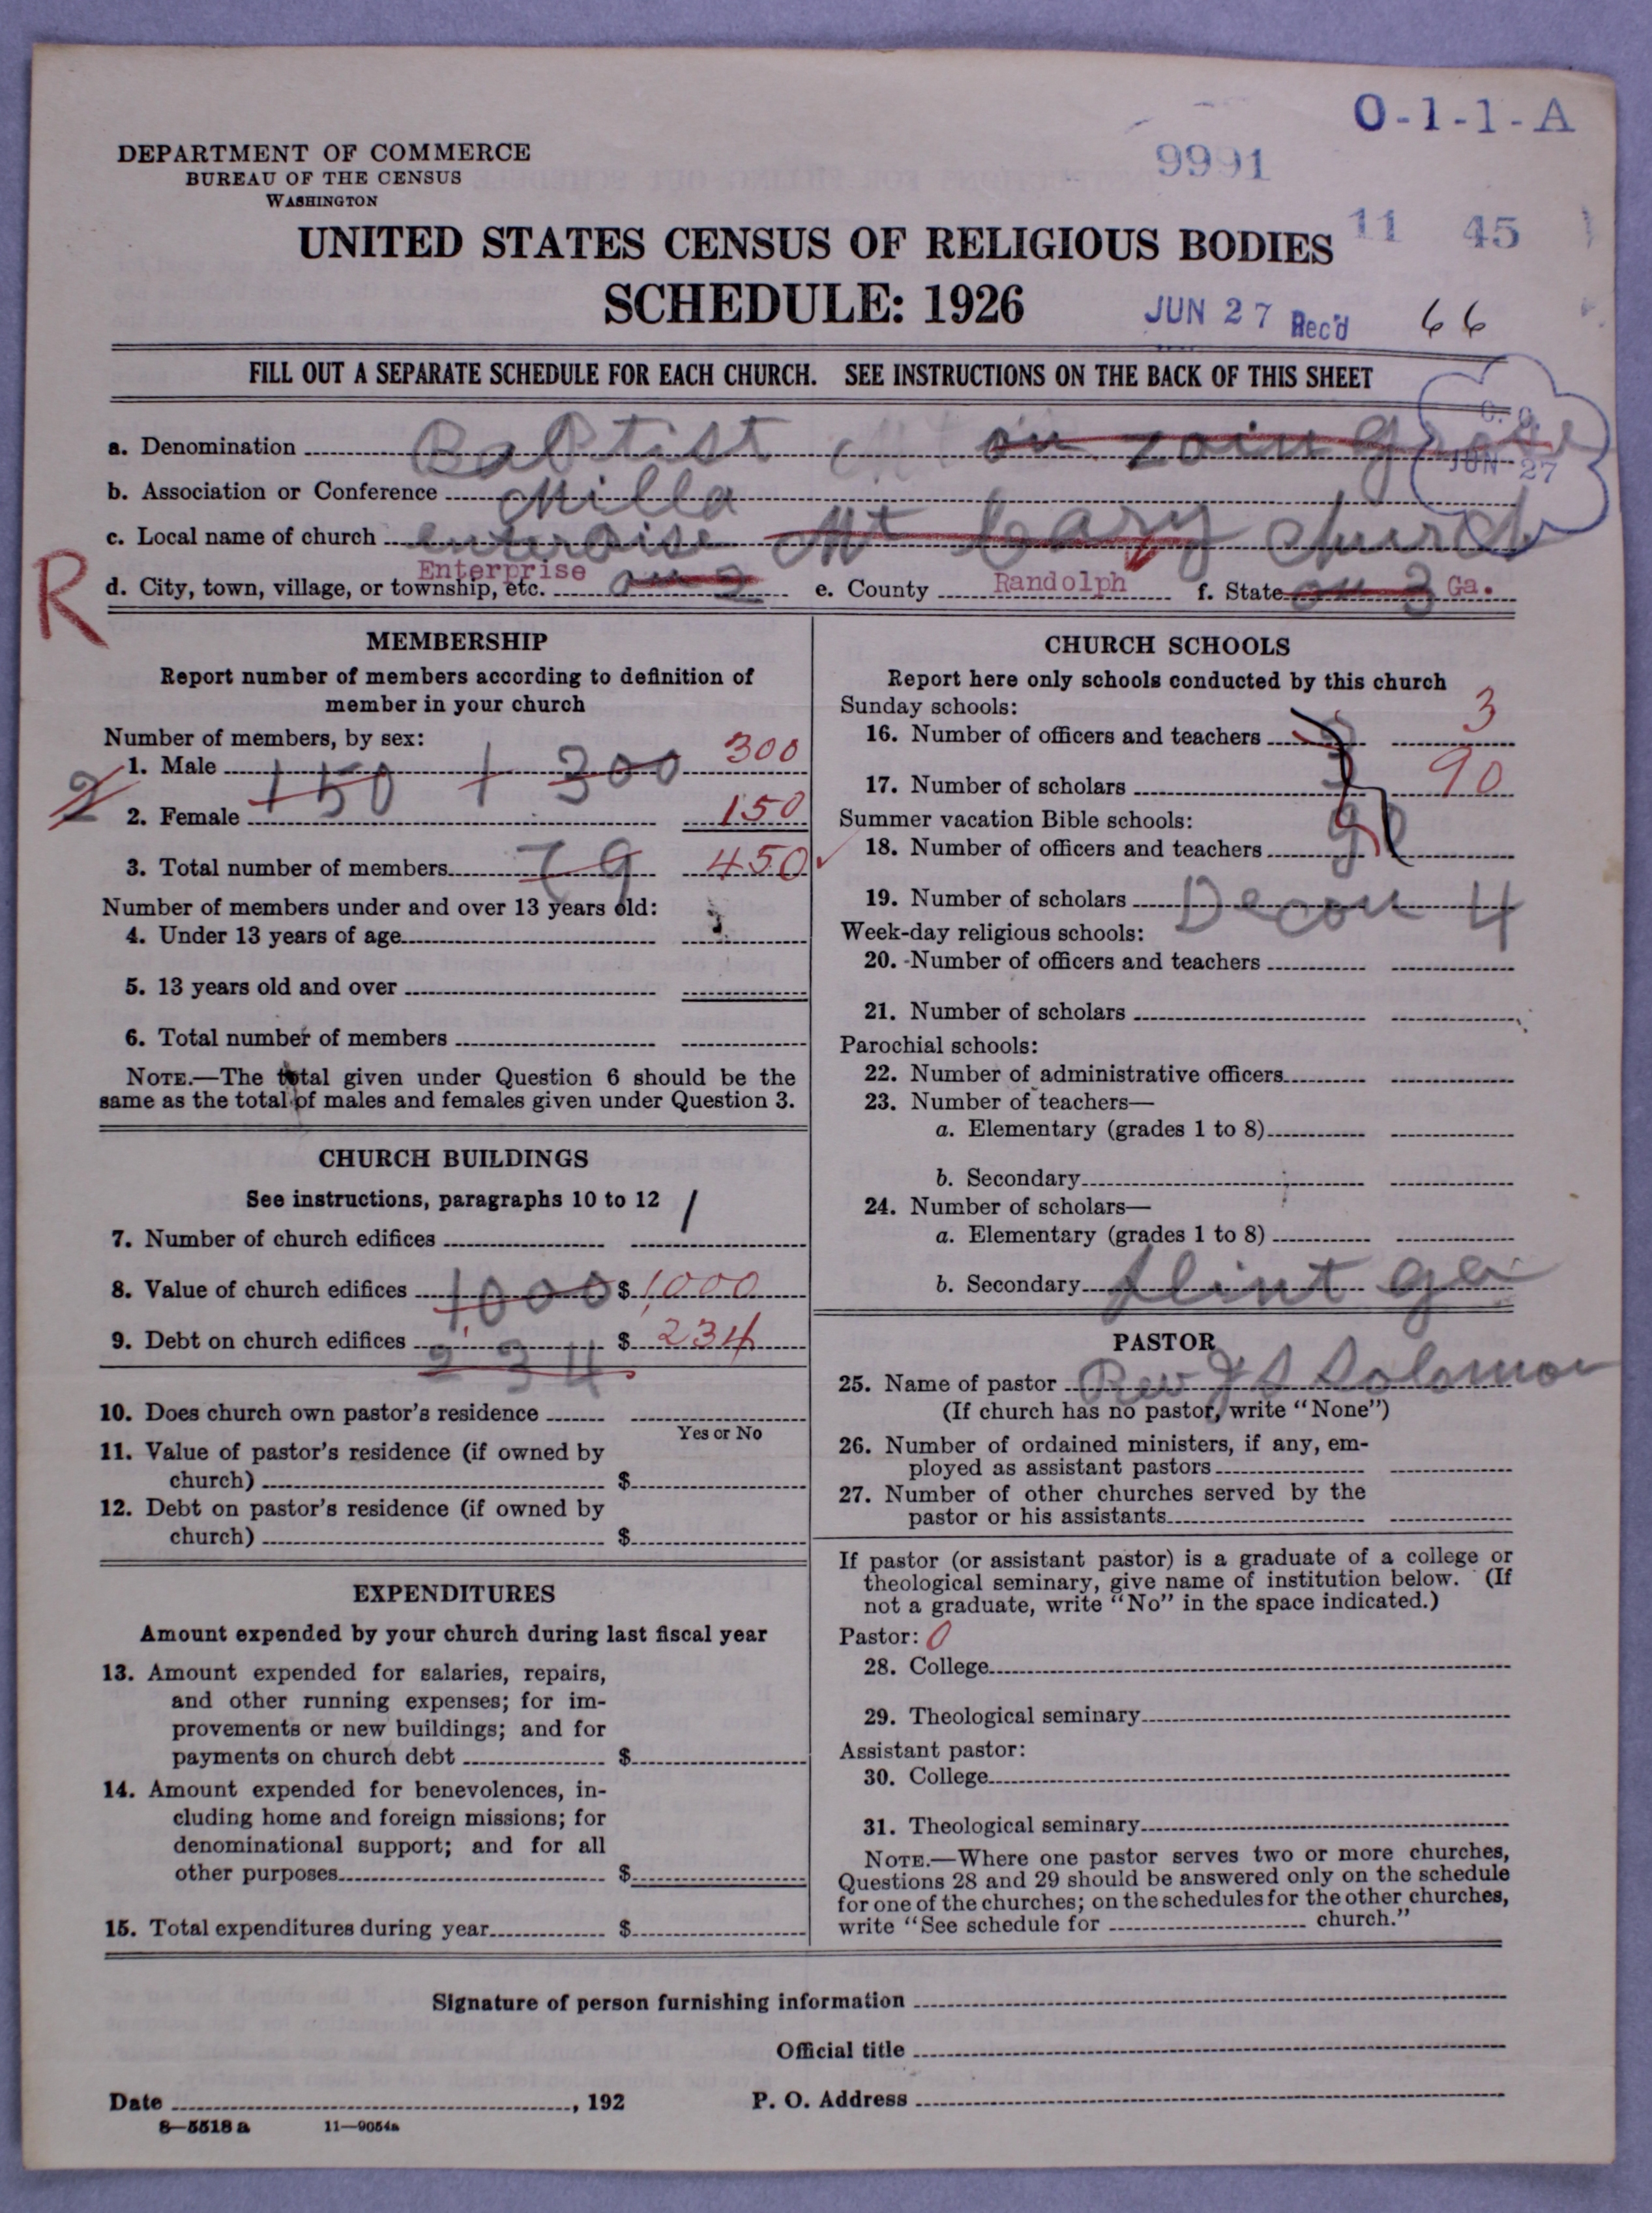 O-1-1-A
DEPARTMENT OF COMMERCE
BUREAU OF THE CENSUS
WASHINGTON
9991
UNITED STATES CENSUS OF RELIGIOUS BODIES
11 45
SCHEDULE: 1926
JUN 27 Rec'd 66
FILL OUT A SEPARATE SCHEDULE FOR EACH CHURCH. SEE INSTRUCTIONS ON THE BACK OF THIS SHEET
JUN 27
a. Denomination Baptist Mt on zoin grove
b. Association or Conference Milla
c. Local name of church enteroise Mt Cary church
d. City, town, village, or township, etc. Enterprise on 2 e. County Randolph f. State on 3 Ga.
R
MEMBERSHIP
Report number of members according to definition of
member in your church
Number of members, by sex:
1. Male 150 + 300 300
2
2. Female 150
3. Total number of members 79 450
Number of members under and over 13 years old:
4. Under 13 years of age
5. 13 years old and over
6. Total number of members
NOTE.—The total given under Question 6 should be the
same as the total of males and females given under Question 3.
CHURCH BUILDINGS
See instructions, paragraphs 10 to 12
7. Number of church edifices 1
8. Value of church edifices 1000 $ 1,000
9. Debt on church edifices 234 $ 234
10. Does church own pastor's residence
Yes or No
11. Value of pastor's residence (if owned by
church) $
12. Debt on pastor's residence (if owned by
church) $
EXPENDITURES
Amount expended by your church during last fiscal year
13. Amount expended for salaries, repairs,
and other running expenses; for im-
provements or new buildings; and for
payments on church debt $
14. Amount expended for benevolences, in-
cluding home and foreign missions; for
denominational support; and for all
other purposes $
15. Total expenditures during year $
CHURCH SCHOOLS
Report here only schools conducted by this church
Sunday schools:
16. Number of officers and teachers 3 3
17. Number of scholars 90
Summer vacation Bible schools:
18. Number of officers and teachers 90
19. Number of scholars Decon 4
Week-day religious schools:
20. Number of officers and teachers
21. Number of scholars
Parochial schools:
22. Number of administrative officers
23. Number of teachers—
a. Elementary (grades 1 to 8)
b. Secondary
24. Number of scholars—
a. Elementary (grades 1 to 8)
b. Secondary flint ga
PASTOR
25. Name of pastor Rev J S Solomon
(If church has no pastor, write "None")
26. Number of ordained ministers, if any, em-
ployed as assistant pastors
27. Number of other churches served by the
pastor or his assistants
If pastor (or assistant pastor) is a graduate of a college or
theological seminary, give name of institution below. (If
not a graduate, write "No" in the space indicated.)
Pastor: 0
28. College
29. Theological seminary
Assistant pastor:
30. College
31. Theological seminary
NOTE.—Where one pastor serves two or more churches,
Questions 28 and 29 should be answered only on the schedule
for one of the churches; on the schedules for the other churches,
write "See schedule for church."
Signature of person furnishing information
Official title
Date , 192 P. O. Address
8—5518 a 11—9054a